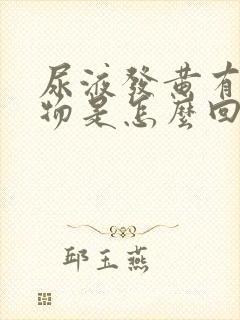 尿液發黄有
物是怎麼回
邱玉燕